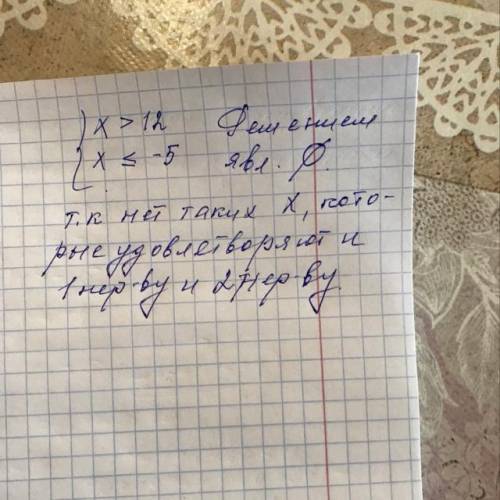 { x > 12 Решением
x ≤ -5 явл. ∅.
т.к нет таких x, кото-
рые удовлетворяют и
1 нер-ву и 2 нер-ву.